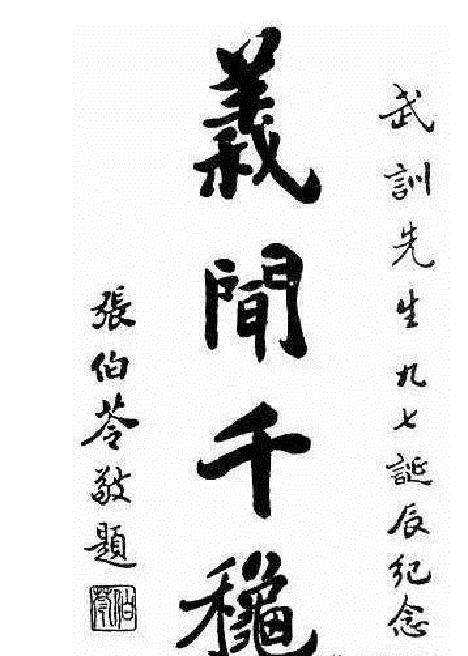 武訓先生九七誕辰紀念
義聞千穐
張伯苓敬題
伯苓